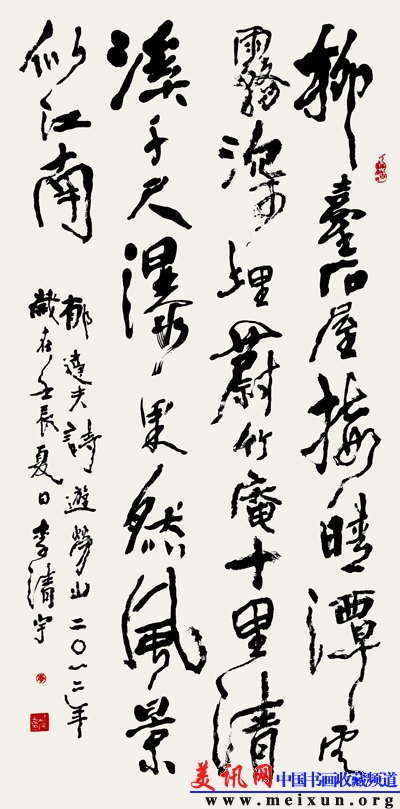 柳臺石屋接晴潭雲
霧深埋蔚竹庵十里清
溪千尺瀑果然風景
似江南
郁達夫詩遊勞山二〇一二年
歲在壬辰夏日李清宇
美讯网 中国书画收藏频道
www.meixun.org